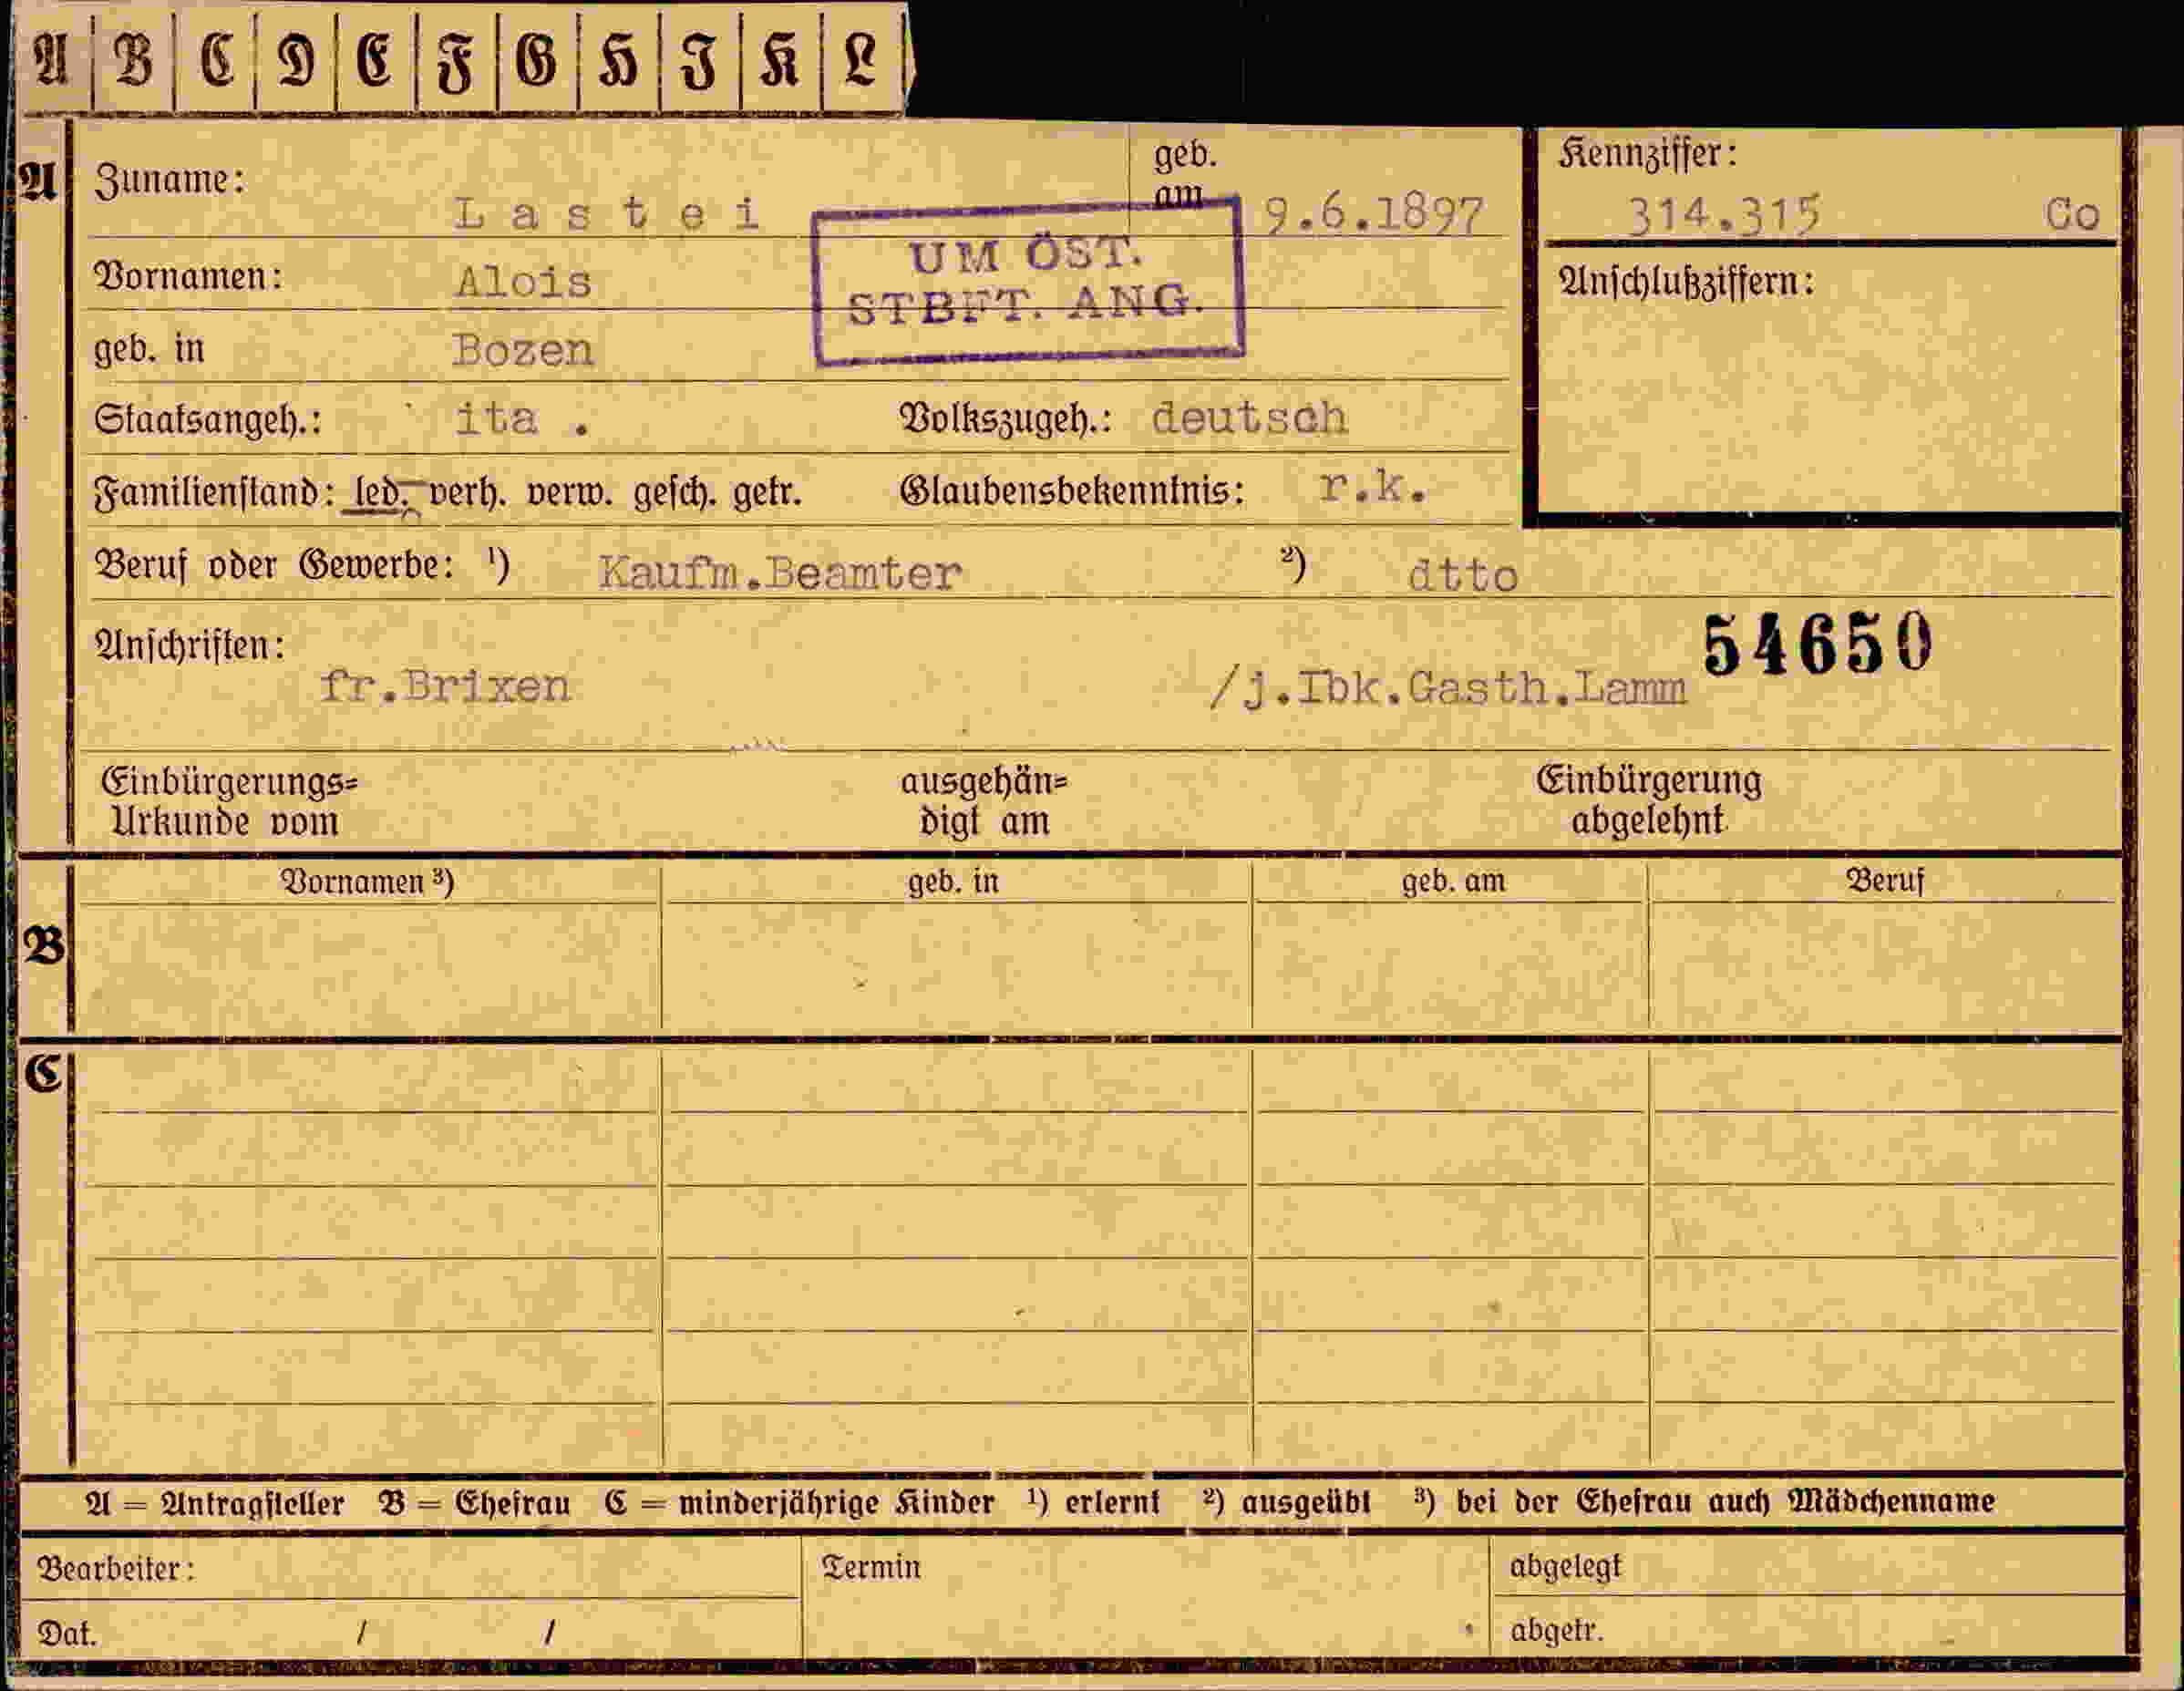 A B C D E F G H I K L
A Zuname: Lastei geb. am 9.6.1897 Kennziffer: 314.315 Co
UM ÖST.
STBFT. ANG.
Vornamen: Alois Anschlußziffern:
geb. in Bozen
Staatsangeh.: ita . Volkszugeh.: deutsch
Familienstand: led. verh. verw. gesch. getr. Glaubensbekenntnis: r.k.
Beruf oder Gewerbe: ¹) Kaufm.Beamter ²) dtto
Anschriften: 54650
fr.Brixen /j.Ibk.Gasth.Lamm
Einbürgerungs= ausgehän= Einbürgerung
Urkunde vom digt am abgelehnt
Vornamen ³) geb. in geb. am Beruf
B
C
A = Antragsteller B = Ehefrau C = minderjährige Kinder ¹) erlernt ²) ausgeübt ³) bei der Ehefrau auch Mädchenname
Bearbeiter: Termin abgelegt
Dat. / / abgetr.